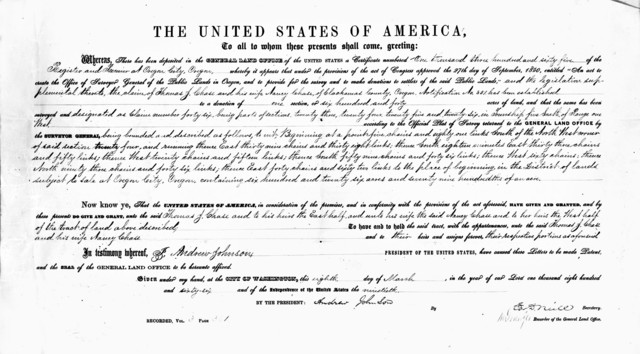 THE UNITED STATES OF AMERICA,
To all to whom these presents shall come, greeting:
Whereas, There has been deposited in the GENERAL LAND OFFICE of the UNITED STATES a Certificate numbered One thousand three hundred and sixty five of the
Register and Receiver at Oregon City, Oregon, whereby it appears that under the provisions of the act of Congress approved the 27th day of September, 1850, entitled "An act to
create the Office of Surveyor General of the Public Lands in Oregon, and to provide for the survey and to make donation to settlers of the said Public Lands," and the legislation sup-
plemental thereto, the claim of Thomas J. Chase and his wife Nancy Chase, of Clackamas County, Oregon, Notification No has been established
to a donation of one section, or six hundred and forty acres of land, and that the same has been
surveyed and designated as Claim number forty six, being parts of sections twenty three, twenty four, twenty five and twenty six, in township five South of Range one
according to the Official Plat of Survey returned to the GENERAL LAND OFFICE by
the SURVEYOR GENERAL, being bounded and described as follows, to wit: Beginning at a point five chains and eighty one links South of the North West corner
of said section twenty four, and running thence East thirty nine chains and thirty eight links; thence South eighteen minutes East thirty three chains
and fifty links; thence West twenty chains and fifteen links; thence South fifty nine chains and forty six links; thence West sixty chains; thence
North ninety three chains and forty six links; thence East forty chains and sixty two links to the place of beginning, in the District of lands
subject to sale at Oregon City, Oregon, containing six hundred and twenty six acres and seventy nine hundredths of an acre.
Now know ye, That the UNITED STATES OF AMERICA, in consideration of the premises, and in conformity with the provisions of the act aforesaid, HAVE GIVEN AND GRANTED, and by
these presents DO GIVE AND GRANT, unto the said Thomas J. Chase and to his heirs the East half, and unto his wife the said Nancy Chase and to her heirs the West half
of the tract of land above described, To have and to hold the said tract, with the appurtenances, unto the said Thomas J. Chase
and his wife Nancy Chase and to their heirs and assigns forever, their respective portions as aforesaid
In testimony whereof, I, Andrew Johnson, PRESIDENT OF THE UNITED STATES, have caused these Letters to be made Patent,
and the SEAL of the GENERAL LAND OFFICE to be hereunto affixed.
Given under my hand, at the CITY OF WASHINGTON, this eighth day of March, in the year of our Lord one thousand eight hundred
and sixty six and of the Independence of the United States the ninetieth.
BY THE PRESIDENT: Andrew Johnson
By Secretary.
Recorder of the General Land Office.
RECORDED, VOL. PAGE